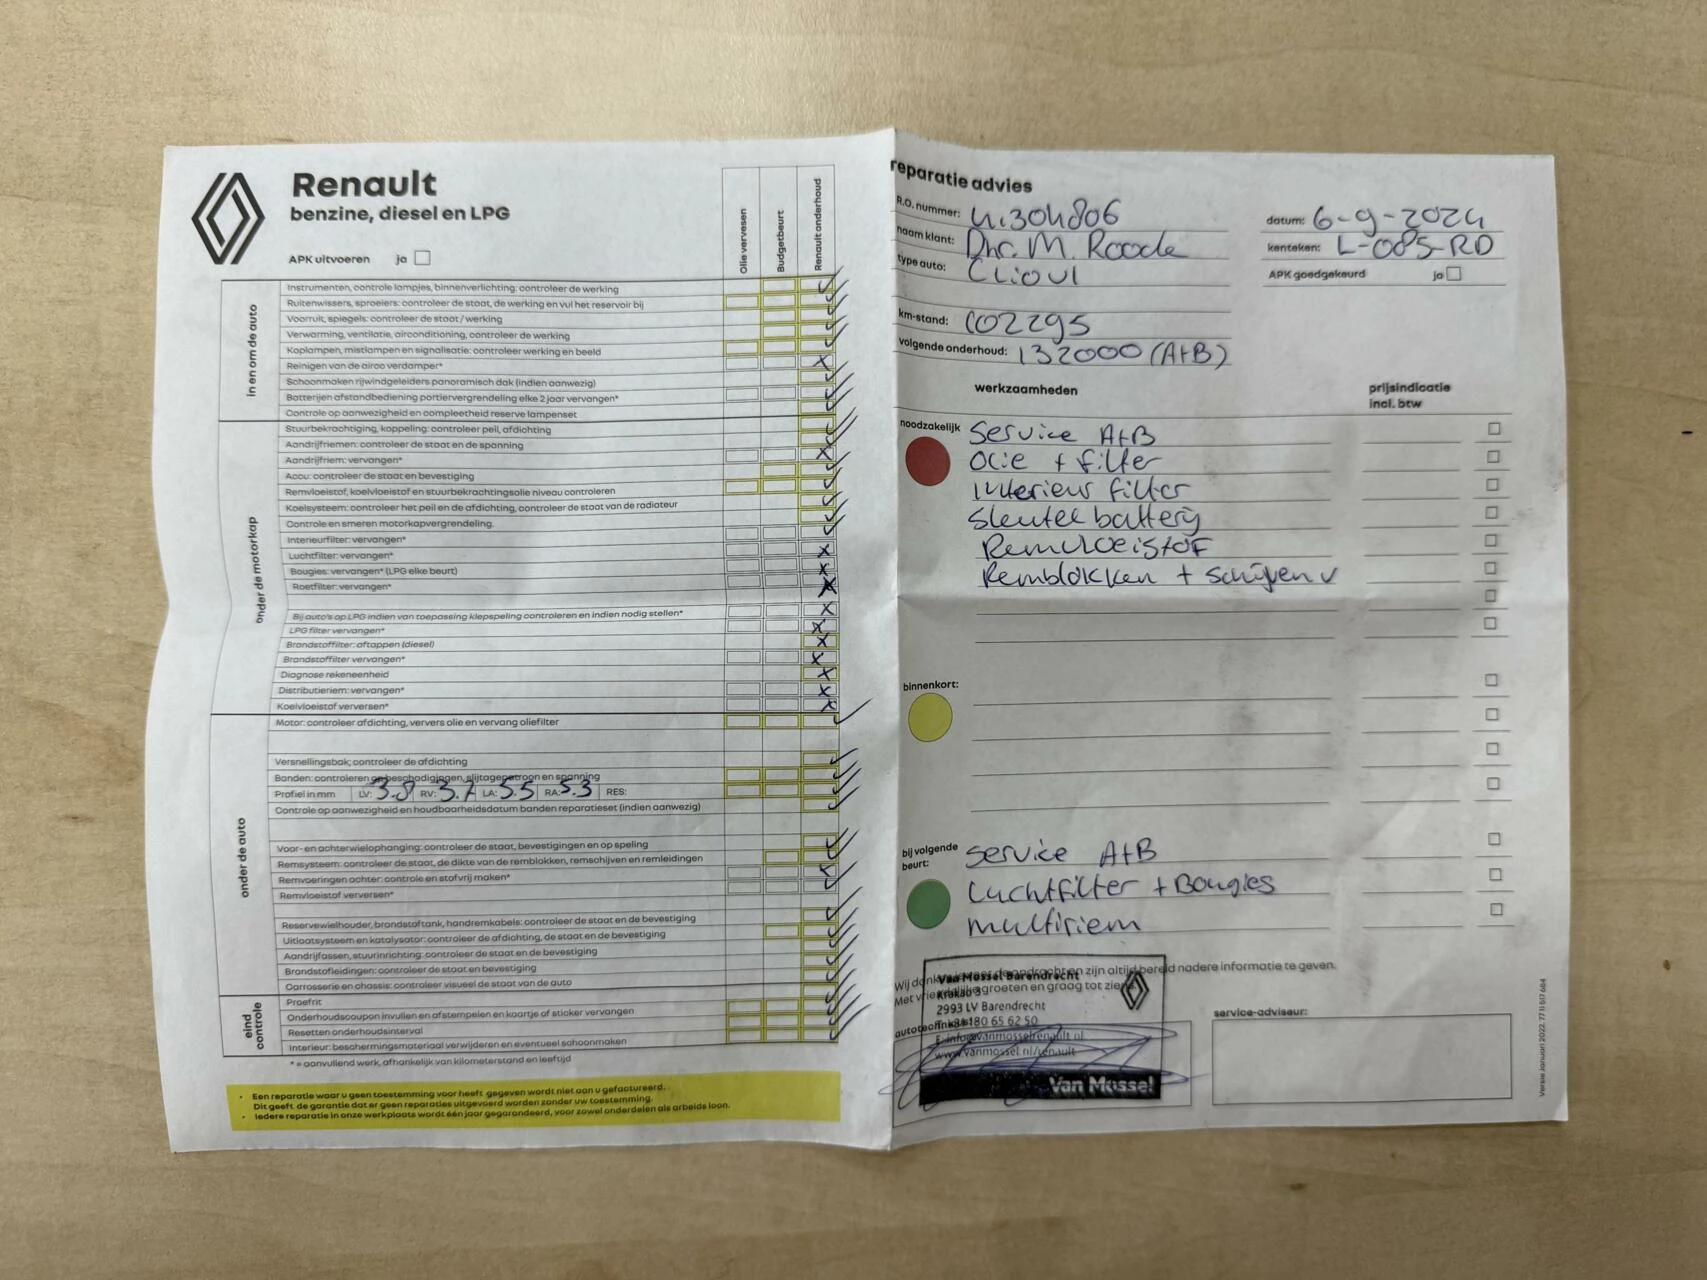 Renault
benzine, diesel en LPG
APK uitvoeren ja
Olie verversen
Budgetbeurt
Renault onderhoud
in en om de auto
Instrumenten, controle lampjes, binnenverlichting: controleer de werking
Ruitenwissers, sproeiers: controleer de staat, de werking en vul het reservoir bij
Voorruit, spiegels: controleer de staat / werking
Verwarming, ventilatie, airconditioning, controleer de werking
Koplampen, mistlampen en signalisatie: controleer werking en beeld
Reinigen van de airco verdamper*
Schoonmaken rijwindgeleiders panoramisch dak (indien aanwezig)
Batterijen afstandbediening portiervergrendeling elke 2 jaar vervangen*
Controle op aanwezigheid en compleetheid reserve lampenset
onder de motorkap
Stuurbekrachtiging, koppeling: controleer peil, afdichting
Aandrijfriemen: controleer de staat en de spanning
Aandrijfriem: vervangen*
Accu: controleer de staat en bevestiging
Remvloeistof, koelvloeistof en stuurbekrachtingsolie niveau controleren
Koelsysteem: controleer het peil en de afdichting, controleer de staat van de radiateur
Controle en smeren motorkapvergrendeling.
Interieurfilter: vervangen*
Luchtfilter: vervangen*
Bougies: vervangen* (LPG elke beurt)
Roetfilter: vervangen*
Bij auto's op LPG indien van toepassing klepspeling controleren en indien nodig stellen*
LPG filter vervangen*
Brandstoffilter: aftappen (diesel)
Brandstoffilter vervangen*
Diagnose rekeneenheid
Distributieriem: vervangen*
Koelvloeistof verversen*
onder de auto
Motor: controleer afdichting, ververs olie en vervang oliefilter
Versnellingsbak; controleer de afdichting
Banden: controleren op beschadigingen, slijtagepatroon en spanning
Profiel in mm LV: 3.8 RV: 3.7 LA: 5.5 RA: 5.3 RES:
Controle op aanwezigheid en houdbaarheidsdatum banden reparatieset (indien aanwezig)
Voor- en achterwielophanging: controleer de staat, bevestigingen en op speling
Remsysteem: controleer de staat, de dikte van de remblokken, remschijven en remleidingen
Remvoeringen achter: controle en stofvrij maken*
Remvloeistof verversen*
Reservewielhouder, brandstoftank, handremkabels: controleer de staat en de bevestiging
Uitlaatsysteem en katalysator: controleer de afdichting, de staat en de bevestiging
Aandrijfassen, stuurinrichting: controleer de staat en de bevestiging
Brandstofleidingen: controleer de staat en bevestiging
Carrosserie en chassis: controleer visueel de staat van de auto
eind controle
Proefrit
Onderhoudscoupon invullen en afstempelen en kaartje of sticker vervangen
Resetten onderhoudsinterval
Interieur: beschermingsmateriaal verwijderen en eventueel schoonmaken
* = aanvullend werk, afhankelijk van kilometerstand en leeftijd
• Een reparatie waar u geen toestemming voor heeft gegeven wordt niet aan u gefactureerd.
Dit geeft de garantie dat er geen reparaties uitgevoerd worden zonder uw toestemming.
• Iedere reparatie in onze werkplaats wordt één jaar gegarandeerd, voor zowel onderdelen als arbeids loon.
reparatie advies
R.O. nummer: 41304806
datum: 6-9-2024
naam klant: Dhr. M. Roode
kenteken: L-085-RD
type auto: CLIOVI
APK goedgekeurd ja
km-stand: 102295
volgende onderhoud: 132000 (A+B)
werkzaamheden
prijsindicatie incl. btw
noodzakelijk
Service A+B
Olie + filter
Interieur filter
Sleutel battery
Remvloeistof
Remblokken + schijven v
binnenkort:
bij volgende beurt:
Service A+B
Luchtfilter + Bougies
multiriem
Wij danken u voor de opdracht en zijn altijd bereid nadere informatie te geven.
Met vriendelijke groeten en graag tot ziens
Van Mossel Barendrecht
2993 LV Barendrecht
180 65 62 50
E: info@vanmosselrenault.nl
www.vanmossel.nl/renault
Van Mossel
service-adviseur:
Versie Januari 2022. 77 11 517 684